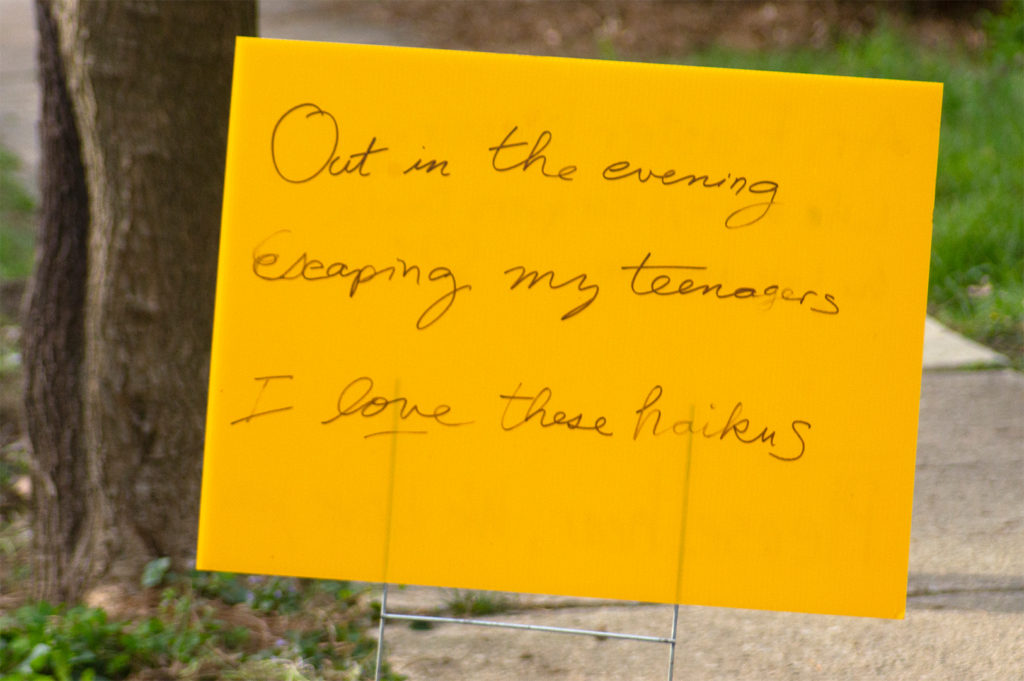 Out in the evening
escaping my teenagers
I love these haikus